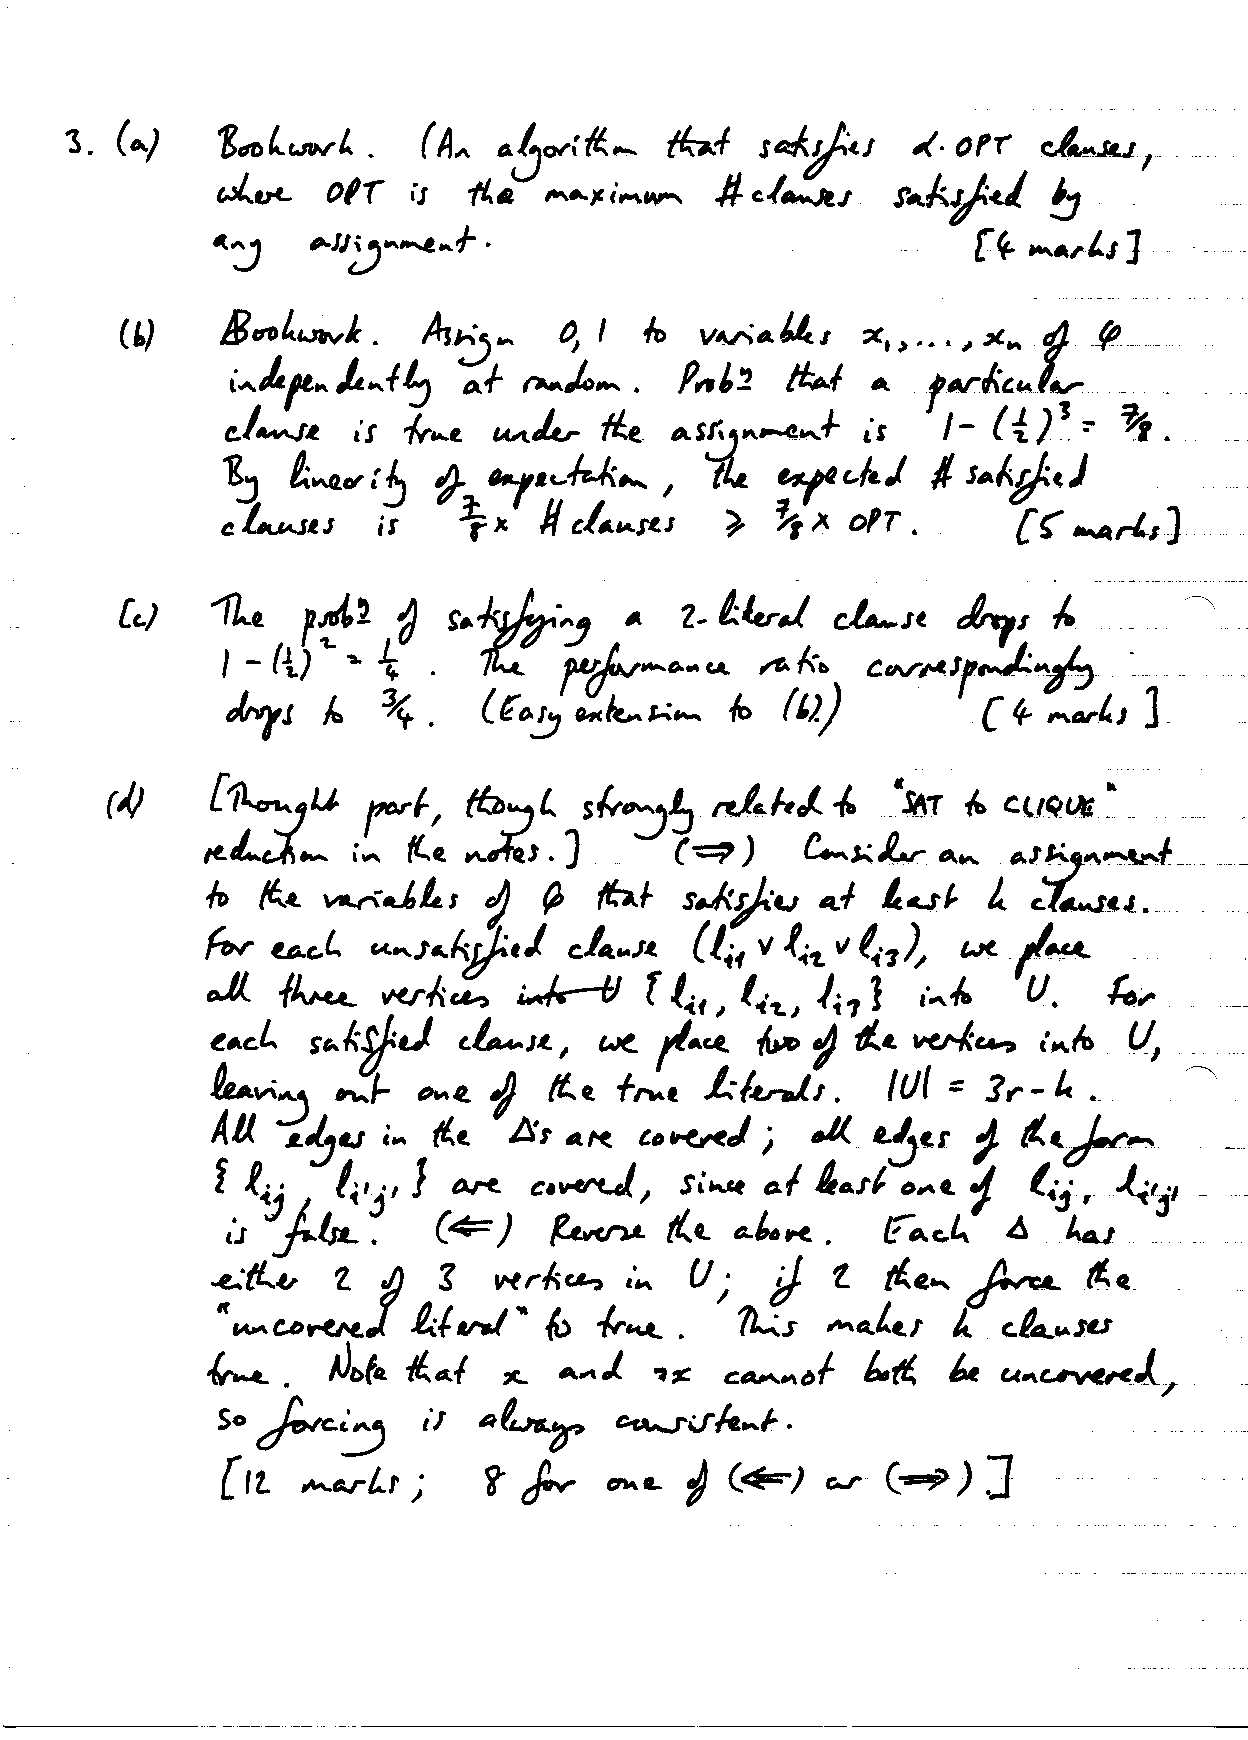 3. (a) Bookwork. (An algorithm that satisfies α·OPT clauses,
where OPT is the maximum # clauses satisfied by
any assignment. [4 marks]
(b) Bookwork. Assign 0, 1 to variables x₁, ..., xₙ of φ
independently at random. Prob⁠y that a particular
clause is true under the assignment is 1 - (½)³ = ⅞.
By linearity of expectation, the expected # satisfied
clauses is ⅞ × # clauses ⩾ ⅞ × OPT. [5 marks]
(c) The prob⁠y of satisfying a 2-literal clause drops to
1 - (½)² = ¼. The performance ratio correspondingly
drops to ¾. (Easy extension to (b).) [4 marks].
(d) [Thought part, though strongly related to "SAT to CLIQUE"
reduction in the notes.] (⇒) Consider an assignment
to the variables of φ that satisfies at least k clauses.
For each unsatisfied clause (lᵢ₁ ∨ lᵢ₂ ∨ lᵢ₃), we place
all three vertices into U {lᵢ₁, lᵢ₂, lᵢ₃} into U. For
each satisfied clause, we place two of the vertices into U,
leaving out one of the true literals. |U| = 3r - k.
All edges in the Δ's are covered; all edges of the form
{lᵢⱼ, lᵢ'ⱼ'} are covered, since at least one of lᵢⱼ, lᵢ'ⱼ'
is false. (⇐) Reverse the above. Each Δ has
either 2 of 3 vertices in U; if 2 then force the
"uncovered literal" to true. This makes k clauses
true. Note that x and ¬x cannot both be uncovered,
so forcing is always consistent.
[12 marks; 8 for one of (⇐) or (⇒).]